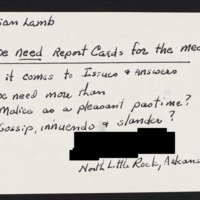 ian Lamb
be need Report Cards for the med
it comes to Issues & Answers
be need more than
Malice as a pleasant pastime?
Gossip, innuendo & slander?
North Little Rock, Arkansas